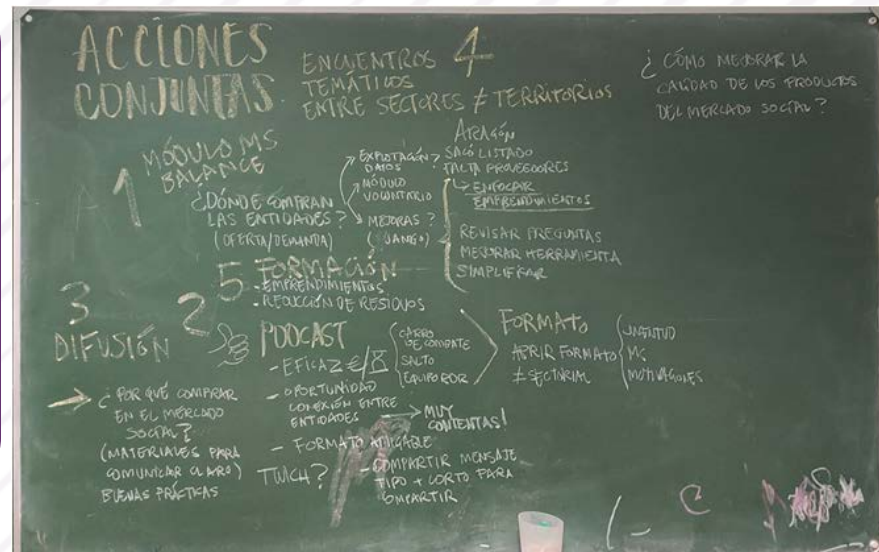 ACCIONES
CONJUNTAS
ENCUENTROS 4
TEMÁTICOS
ENTRE SECTORES ≠ TERRITORIOS
¿CÓMO MEJORAR LA
CALIDAD DE LOS PRODUCTOS
DEL MERCADO SOCIAL?
1
MÓDULO MS
BALANCE
¿DÓNDE COMPRAN
LAS ENTIDADES?
(OFERTA/DEMANDA)
EXPLOTACIÓN?
DATOS
MÓDULO
VOLUNTARIO
MEJORAS?
ARAGÓN
SACÓ LISTADO
FALTA PROVEEDORES
ENFOCAR
EMPRENDIMIENTOS
REVISAR PREGUNTAS
MEJORAR HERRAMIENTA
SIMPLIFICAR
5 FORMACIÓN
- EMPRENDIMIENTOS
- REDUCCIÓN DE RESIDUOS
3
DIFUSIÓN
¿POR QUÉ COMPRAR
EN EL MERCADO
SOCIAL?
(MATERIALES PARA
COMUNICAR CLARO)
BUENAS PRÁCTICAS
2
PODCAST
- EFICAZ €/
- OPORTUNIDAD
CONEXIÓN ENTRE
ENTIDADES
MUY
CONTENTAS!
- FORMATO AMIGABLE
TWICH?
- COMPARTIR MENSAJE
TIPO + CORTO PARA
COMPARTIR
CARRO
DE COMBATE
SALTO
EQUIPO
FORMATO
ABRIR FORMATO
≠ SECTORIAL
JUVENTUD
MOTIVACIONES